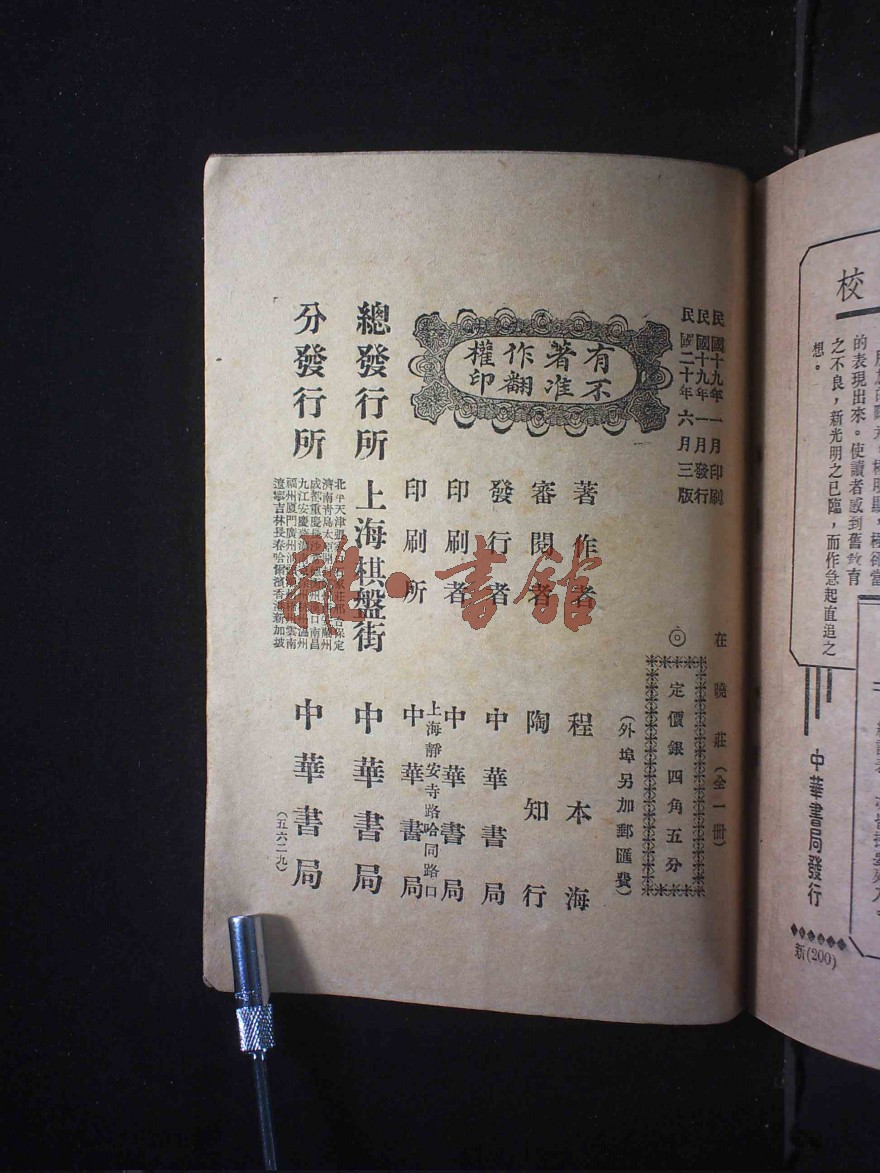 民國十九年一月印刷
民國十九年一月發行
民國二十年六月三版
在曉莊（全一冊）
◎定價銀四角五分
（外埠另加郵匯費）
有著作權
不准翻印
著作者 程本海
審閱者 陶知行
發行者 中華書局
印刷者 中華書局
上海靜安寺路哈同路口
印刷所 中華書局
總發行所 上海棋盤街 中華書局
分發行所
北平天津 邢台保定
濟南青島太原 蘭州
成都重慶長沙 漢口南昌
九江安慶蕪湖 溫州
福州廈門廣州 雲南
遼寧吉林長春哈爾濱香港新加坡
中華書局
（五六二九）
雜·書館
校
的表現出來。使讀者感到舊教育
之不良，新光明之已臨，而作急起直追之
想。
中華書局發行
新(200)